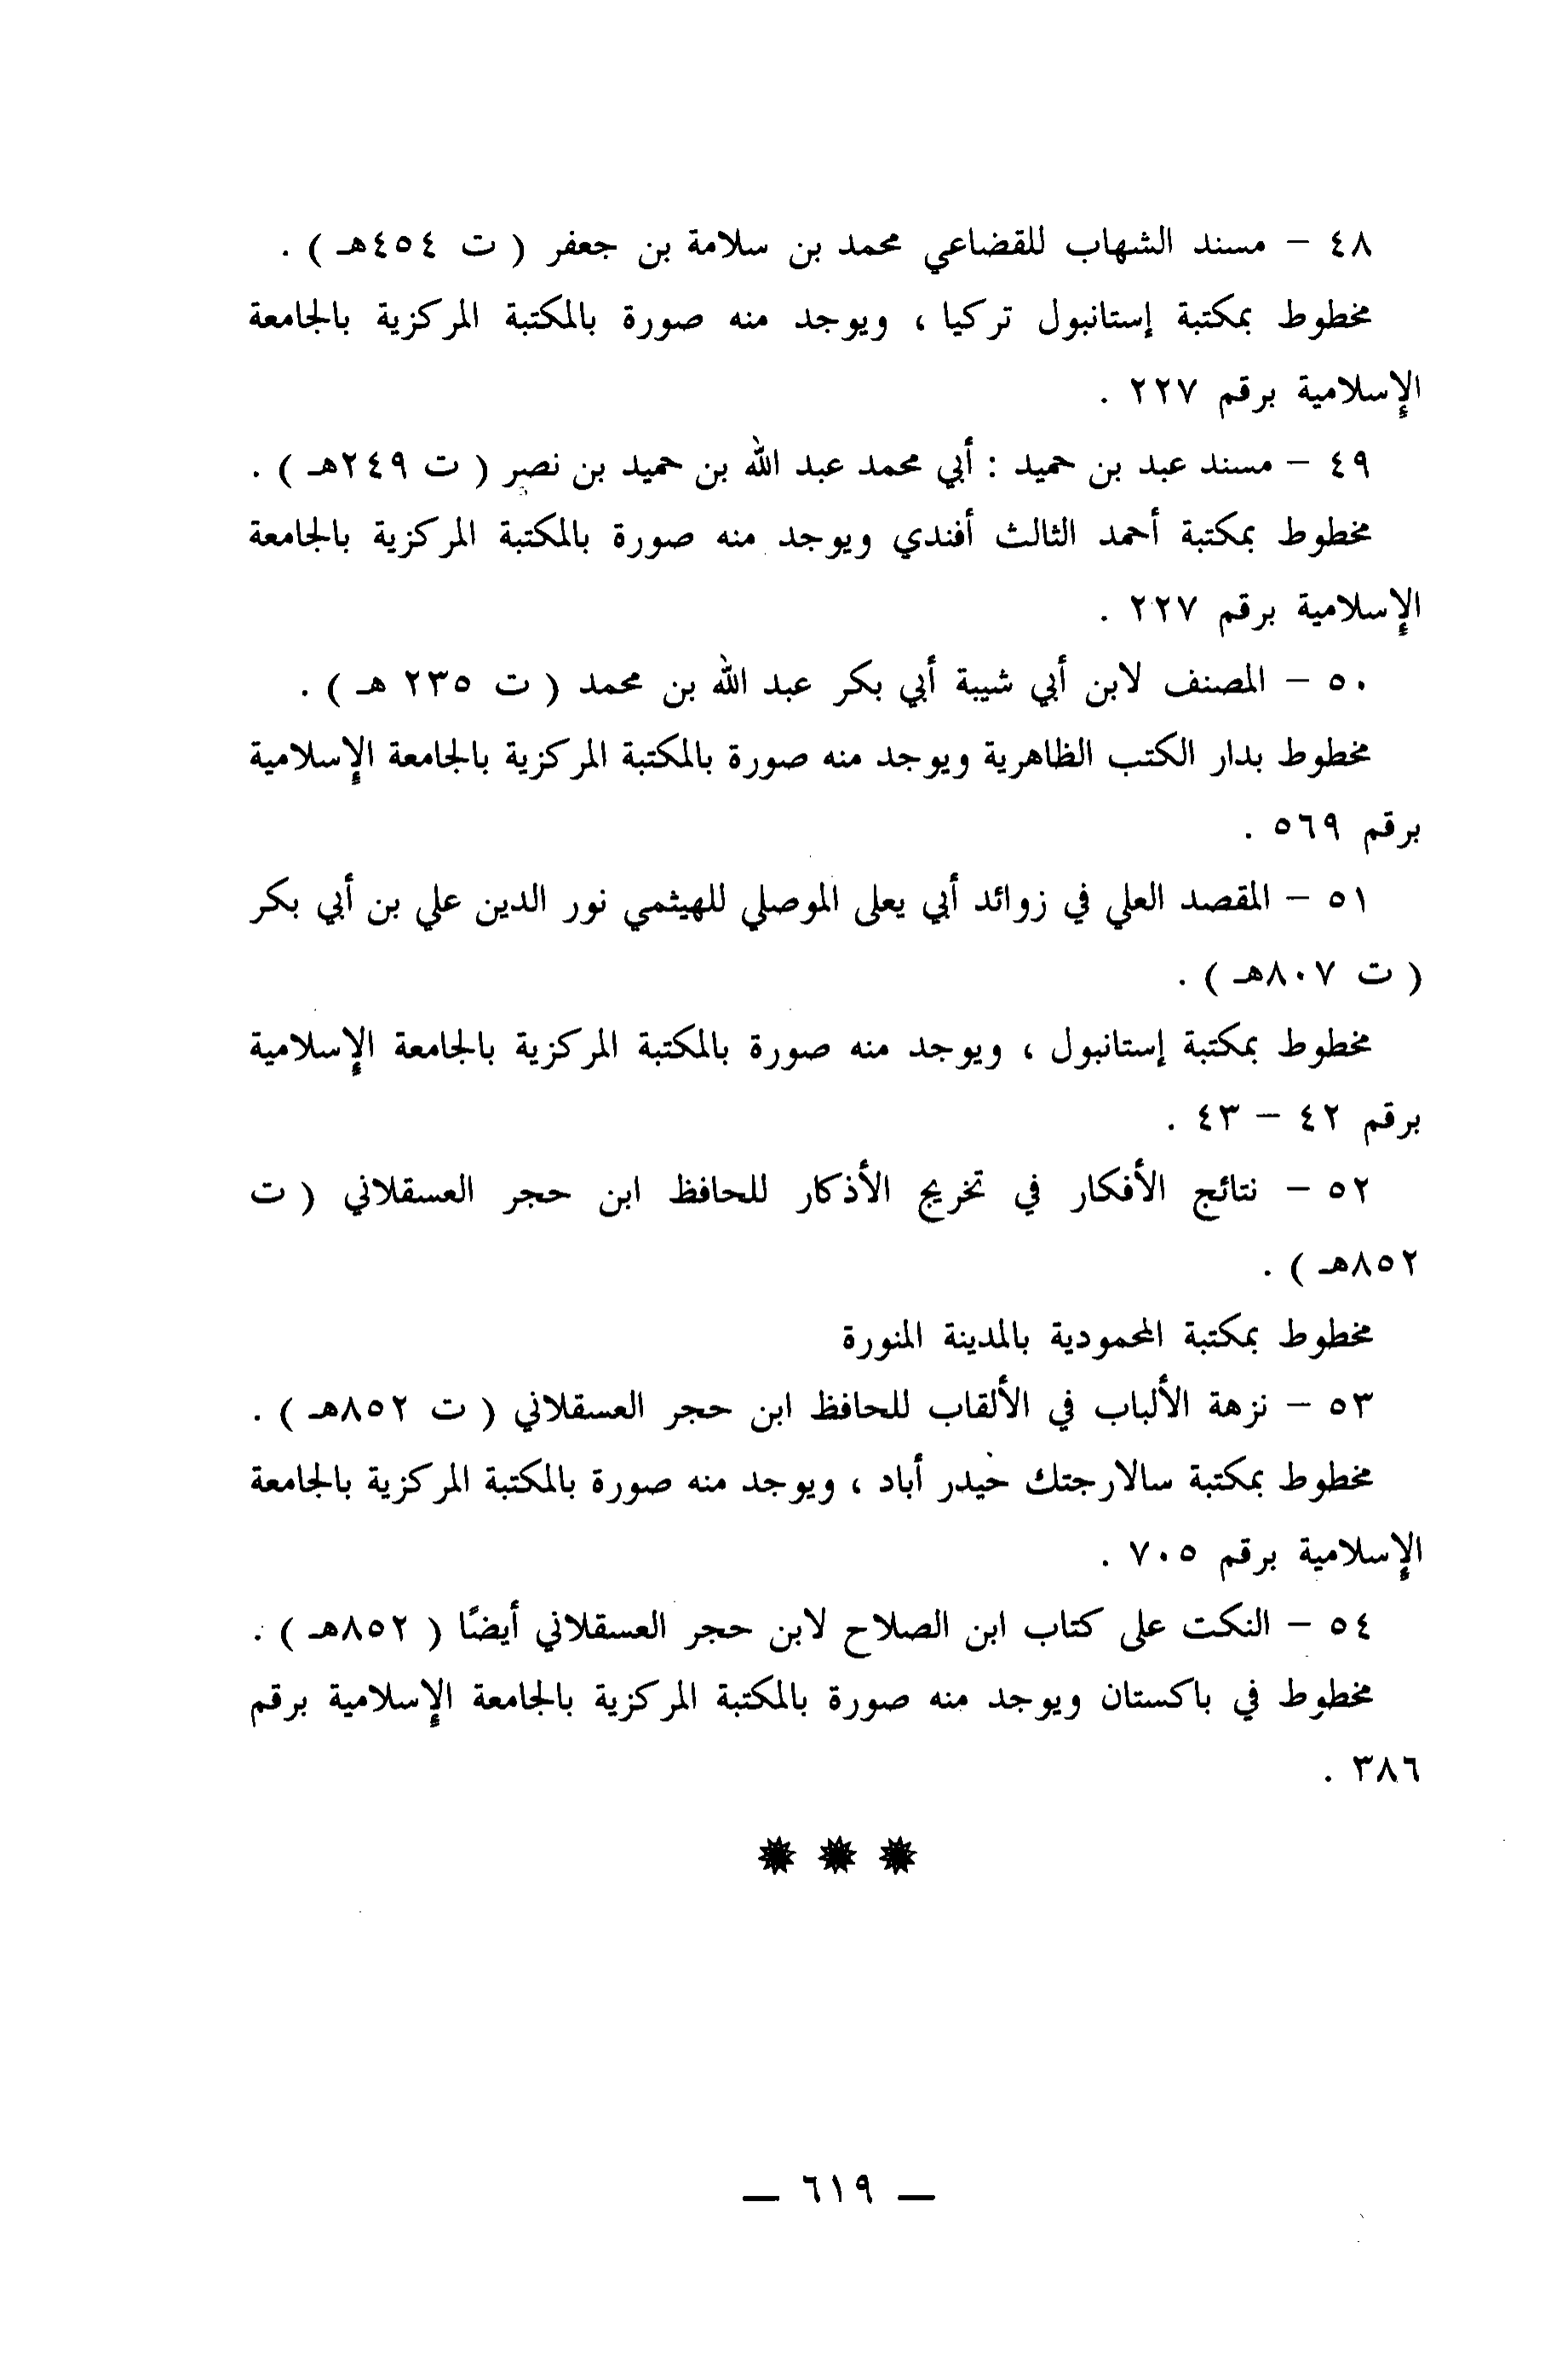 ٤٨ – مسند الشهاب للقضاعي محمد بن سلامة بن جعفر ( ت ٤٥٤هـ ) .
مخطوط بمكتبة إستانبول تركيا ، ويوجد منه صورة بالمكتبة المركزية بالجامعة
الإسلامية برقم ٢٢٧ .
٤٩ – مسند عبد بن حميد : أبي محمد عبد الله بن حميد بن نصر ( ت ٢٤٩هـ ) .
مخطوط بمكتبة أحمد الثالث أفندي ويوجد منه صورة بالمكتبة المركزية بالجامعة
الإسلامية برقم ٢٢٧ .
٥٠ – المصنف لابن أبي شيبة أبي بكر عبد الله بن محمد ( ت ٢٣٥ هـ ) .
مخطوط بدار الكتب الظاهرية ويوجد منه صورة بالمكتبة المركزية بالجامعة الإسلامية
برقم ٥٦٩ .
٥١ – المقصد العلي في زوائد أبي يعلى الموصلي للهيثمي نور الدين علي بن أبي بكر
( ت ٨٠٧هـ ) .
مخطوط بمكتبة إستانبول ، ويوجد منه صورة بالمكتبة المركزية بالجامعة الإسلامية
برقم ٤٢ – ٤٣ .
٥٢ – نتائج الأفكار في تخريج الأذكار للحافظ ابن حجر العسقلاني ( ت
٨٥٢هـ ) .
مخطوط بمكتبة المحمودية بالمدينة المنورة
٥٣ – نزهة الألباب في الألقاب للحافظ ابن حجر العسقلاني ( ت ٨٥٢هـ ) .
مخطوط بمكتبة سالارجتك حيدر أباد ، ويوجد منه صورة بالمكتبة المركزية بالجامعة
الإسلامية برقم ٧٠٥ .
٥٤ – النكت على كتاب ابن الصلاح لابن حجر العسقلاني أيضًا ( ٨٥٢هـ ) .
مخطوط في باكستان ويوجد منه صورة بالمكتبة المركزية بالجامعة الإسلامية برقم
٣٨٦ .
— ٦١٩ —